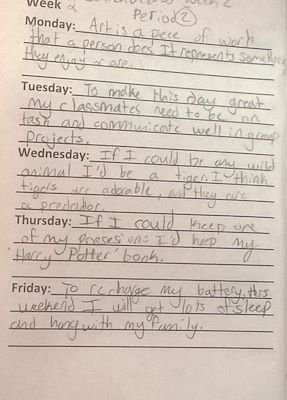 Week 2
Period 2
Monday: Art is a piece of work
that a person does It represents something
they enjoy or are.
Tuesday: To make this day great
my classmates need to be on
task and communicate well in group
projects.
Wednesday: If I could be any wild
animal I'd be a tiger. I think
tigers are adorable, and they are
a predator.
Thursday: If I could keep one
of my posesions I'd keep my
Harry Potter book.
Friday: To recharge my battery this
weekend I will get lots of sleep
and hang with my family.